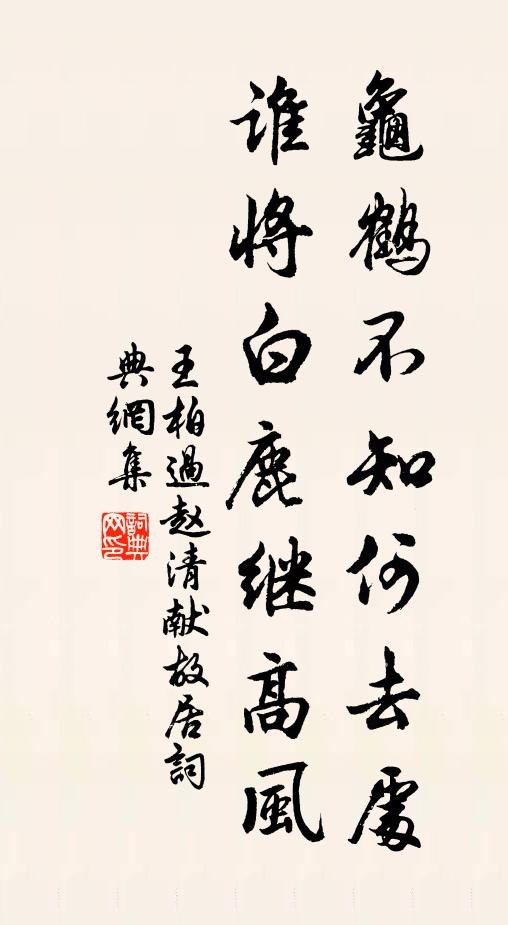 龜鶴不知何去處
谁將白鹿继高風
王柏過赵清献故居詞
典網集
詞典
网印